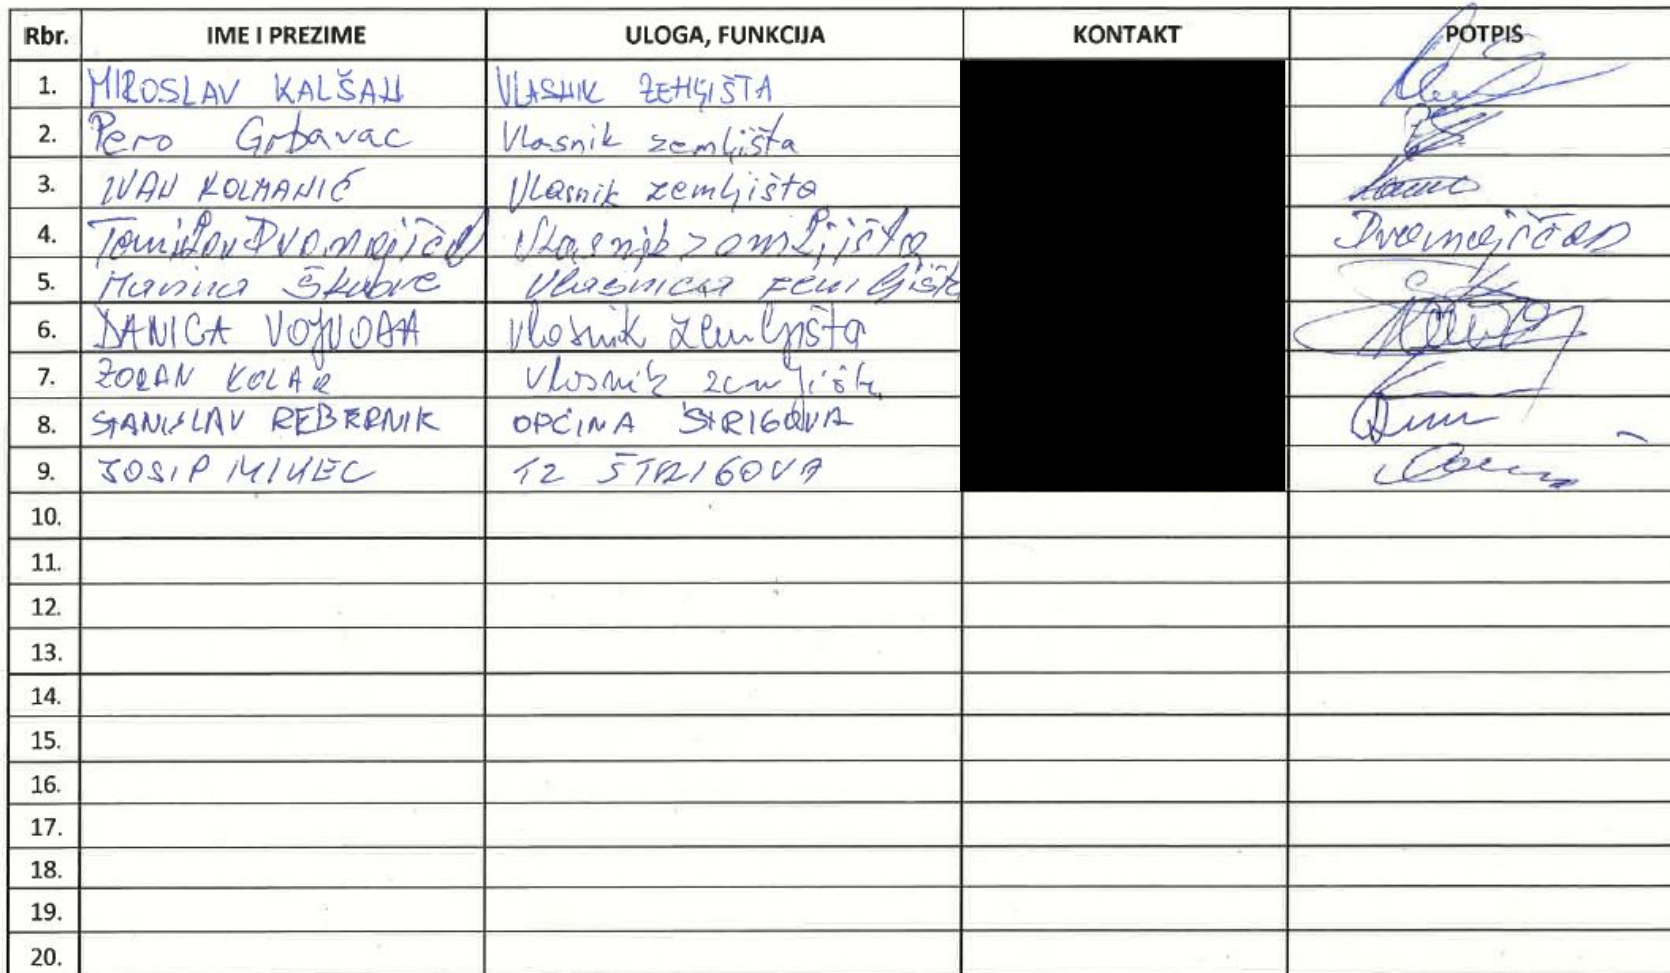 Rbr. IME I PREZIME ULOGA, FUNKCIJA KONTAKT POTPIS
1. MIROSLAV KALŠAN VLASNIK ZEMLJIŠTA
2. Pero Grbavac Vlasnik zemljišta
3. IVAN KOLMANIĆ Vlasnik zemljišta
4. Tomislav Dvanajščak Vlasnik zemljišta
5. Marina Vlasnica zemljišta
6. DANICA VOJVODA vlasnik zemljišta
7. ZORAN KOLAR Vlasnik zemljišta
8. STANISLAV REBERNIK OPĆINA ŠTRIGOVA
9. JOSIP TZ ŠTRIGOVA
10.
11.
12.
13.
14.
15.
16.
17.
18.
19.
20.